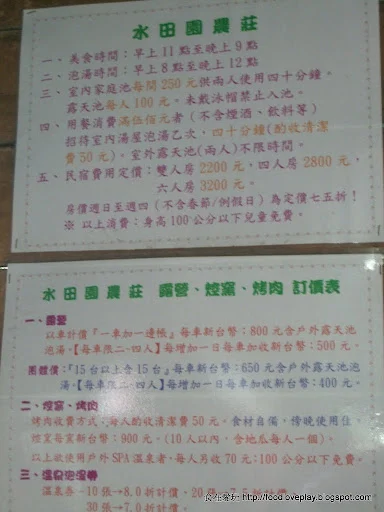 水田園農莊
一、美食時間：早上11點至晚上9點
二、泡湯時間：早上8點至晚上12點
三、室內家庭池每間250元供兩人使用四十分鐘。
露天池每人100元。未戴泳帽禁止入池。
四、用餐消費滿伍佰元者（不含煙酒、飲料等）
招待室內湯屋泡湯乙次，四十分鐘(酌收清潔
費50元)，室外露天池(兩人)不限時間。
五、民宿費用定價：雙人房2200元，四人房2800元，
六人房3200元。
房價週日至週四（不含春節/例假日）為定價七五折！
※ 以上消費：身高100公分以下兒童免費。
水田園農莊 露營、焢窯、烤肉 訂價表
一、露營
以車計價『一車加一達帳』每車新台幣：800元含戶外露天池
泡湯。【每車限二-四人】每增加一日每車加收新台幣：500元。
團體價:『15台以上含15台』每車新台幣：650元含戶外露天池泡
湯。【每車限二-四人】每增加一日每車加收新台幣：400元。
二、焢窯、烤肉
烤肉收費方式：每人酌收清潔費50元。食材自備，傍晚使用住
焢窯每窯新台幣：900元。(10人以內，含地瓜每人一個)。
以上欲使用戶外SPA溫泉者，每人另收70元：100公分以下免費
三、溫泉泡湯券
溫泉券-10張→8.0折計價，20張→7.5折計價
30張→7.0折計價。
http://food.oveplay.blogspot.com